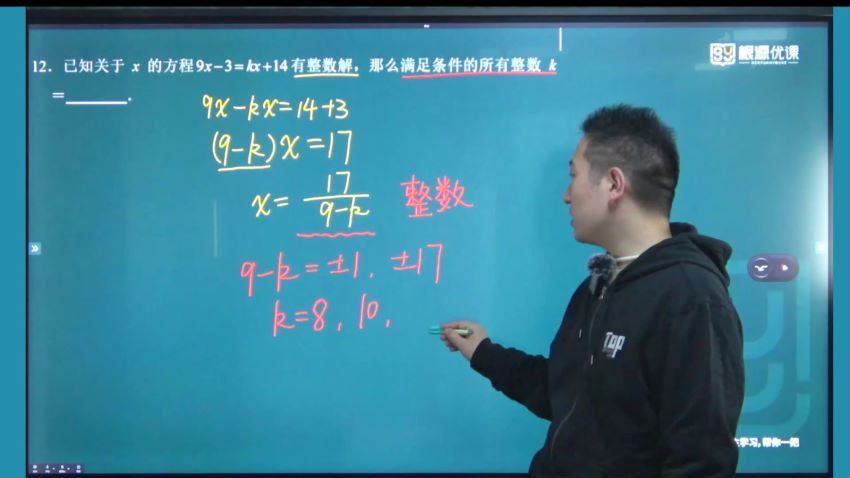 根源优课
12. 已知关于 x 的方程9x-3=kx+14有整数解，那么满足条件的所有整数 k
=______.
9x-kx=14+3
(9-k)x=17
x=17/(9-k) 整数
9-k=±1, ±17
k=8, 10,
Top
学习,帮你一把